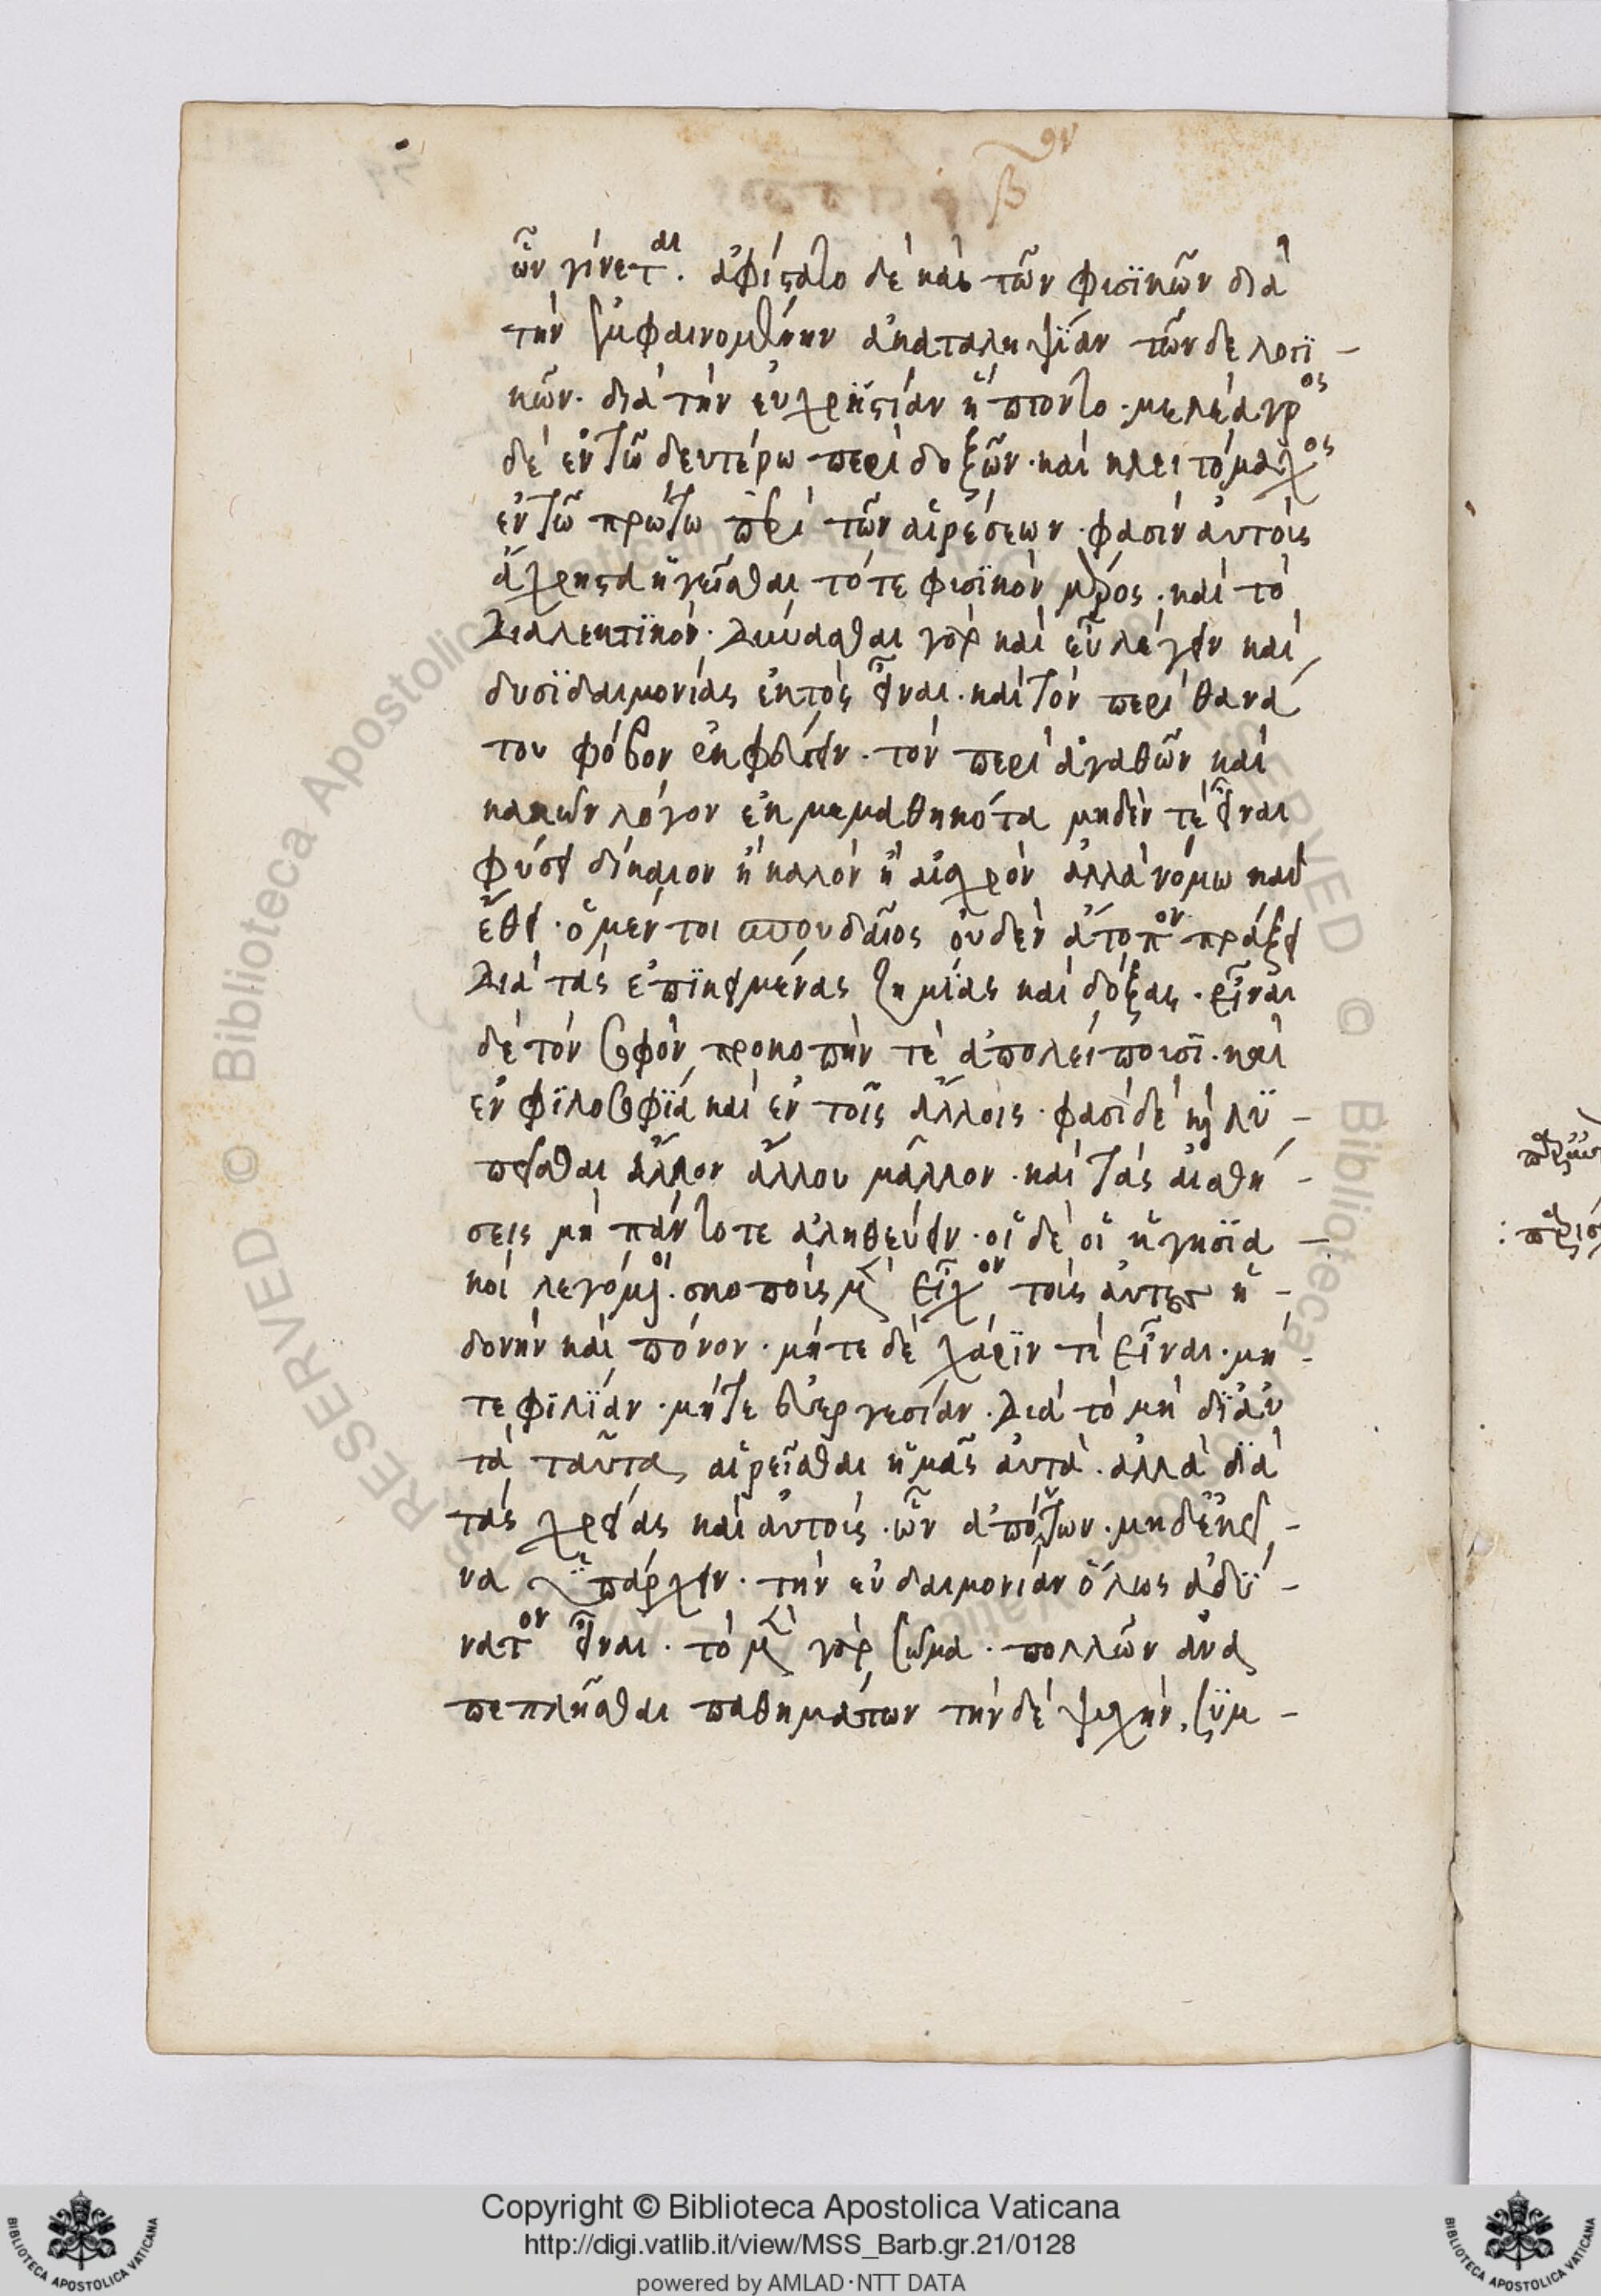 β
ὧν γίνεται. ἀφίσταντο δὲ καὶ τῶν φισϊκῶν διὰ
τὴν ἐμφαινομένην ἀκαταληψΐαν τῶν δὲ λογϊ-
κῶν. διὰ τὴν εὐχρηστίαν ἥπτοντο. μελέαγρος
δὲ ἐν τῶ δευτέρω περὶ δοξῶν. καὶ κλειτόμαχος
ἐν τῶ πρώτω περὶ τῶν αἱρέσεων. φασὶν αὐτοὶς
ἄχρηστα ἡγεῖσθαι τό τε φισϊκὸν μέρος. καὶ τὸ
διαλεκτϊκόν. δύνασθαι γὰρ καὶ εὖ λέγειν καὶ
δυσϊδαιμονίας ἐκτὸς εἶναι. καὶ τὸν περὶ θανά
του φόβον ἐκφεύγειν. τὸν περὶ ἀγαθῶν καὶ
κακῶν λόγον ἐκμεμαθηκότα μηδέν τὲ εἶναι
φύσει δίκαιον ἢ καλὸν ἢ αἰσχρὸν ἀλλὰ νόμω καὶ
ἔθει. ὁ μέντοι σπουδαῖος οὐδὲν ἄτοπον πράξει
διὰ τὰς ἐπϊκειμένας ζημίας καὶ δόξας. εἶναι
δὲ τὸν σοφὸν προκοπήν τὲ ἀπολείποισϊ. καὶ
ἐν φϊλοσοφΐα καὶ ἐν τοῖς ἄλλοις. φασὶ δὲ καὶ λϋ-
πεῖσθαι ἄλλον ἄλλου μᾶλλον. καὶ τὰς αἰσθή-
σεις μὴ πάντοτε ἀληθεύειν. οἱ δὲ οἱ ἡγησϊα-
κοὶ λεγόμενοι. σκοποὶς μὲν εἶχον τοὶς αὐτοὺς ἡ-
δονὴν καὶ πόνον. μήτε δὲ χάρϊν τὶ εἶναι. μή-
τε φϊλΐαν. μήτε εὐεργεσίαν. διὰ τὸ μὴ δι' αὐ
τὰ ταῦτα αἱρεῖσθαι ἡμᾶς αὐτὰ. ἀλλὰ δϊὰ
τὰς χρείας καὶ αὐτοὶς. ὧν ἀπόντων. μηδ' ἐκεῖ-
να ὑπάρχειν. τὴν εὐδαιμονίαν ὅλως ἀδύ-
νατον εἶναι. τὸ μὲν γὰρ σῶμα. πολλῶν ἀνα
πεπλῆσθαι παθημάτων τὴν δὲ ψυχὴν, σϋμ-
Copyright © Biblioteca Apostolica Vaticana
http://digi.vatlib.it/view/MSS_Barb.gr.21/0128
powered by AMLAD·NTT DATA
RESERVED © Biblioteca Apostolica Vaticana ALL RIGHTS RESERVED © Biblioteca Apostolica Vaticana
BIBLIOTECA APOSTOLICA VATICANA
BIBLIOTECA APOSTOLICA VATICANA